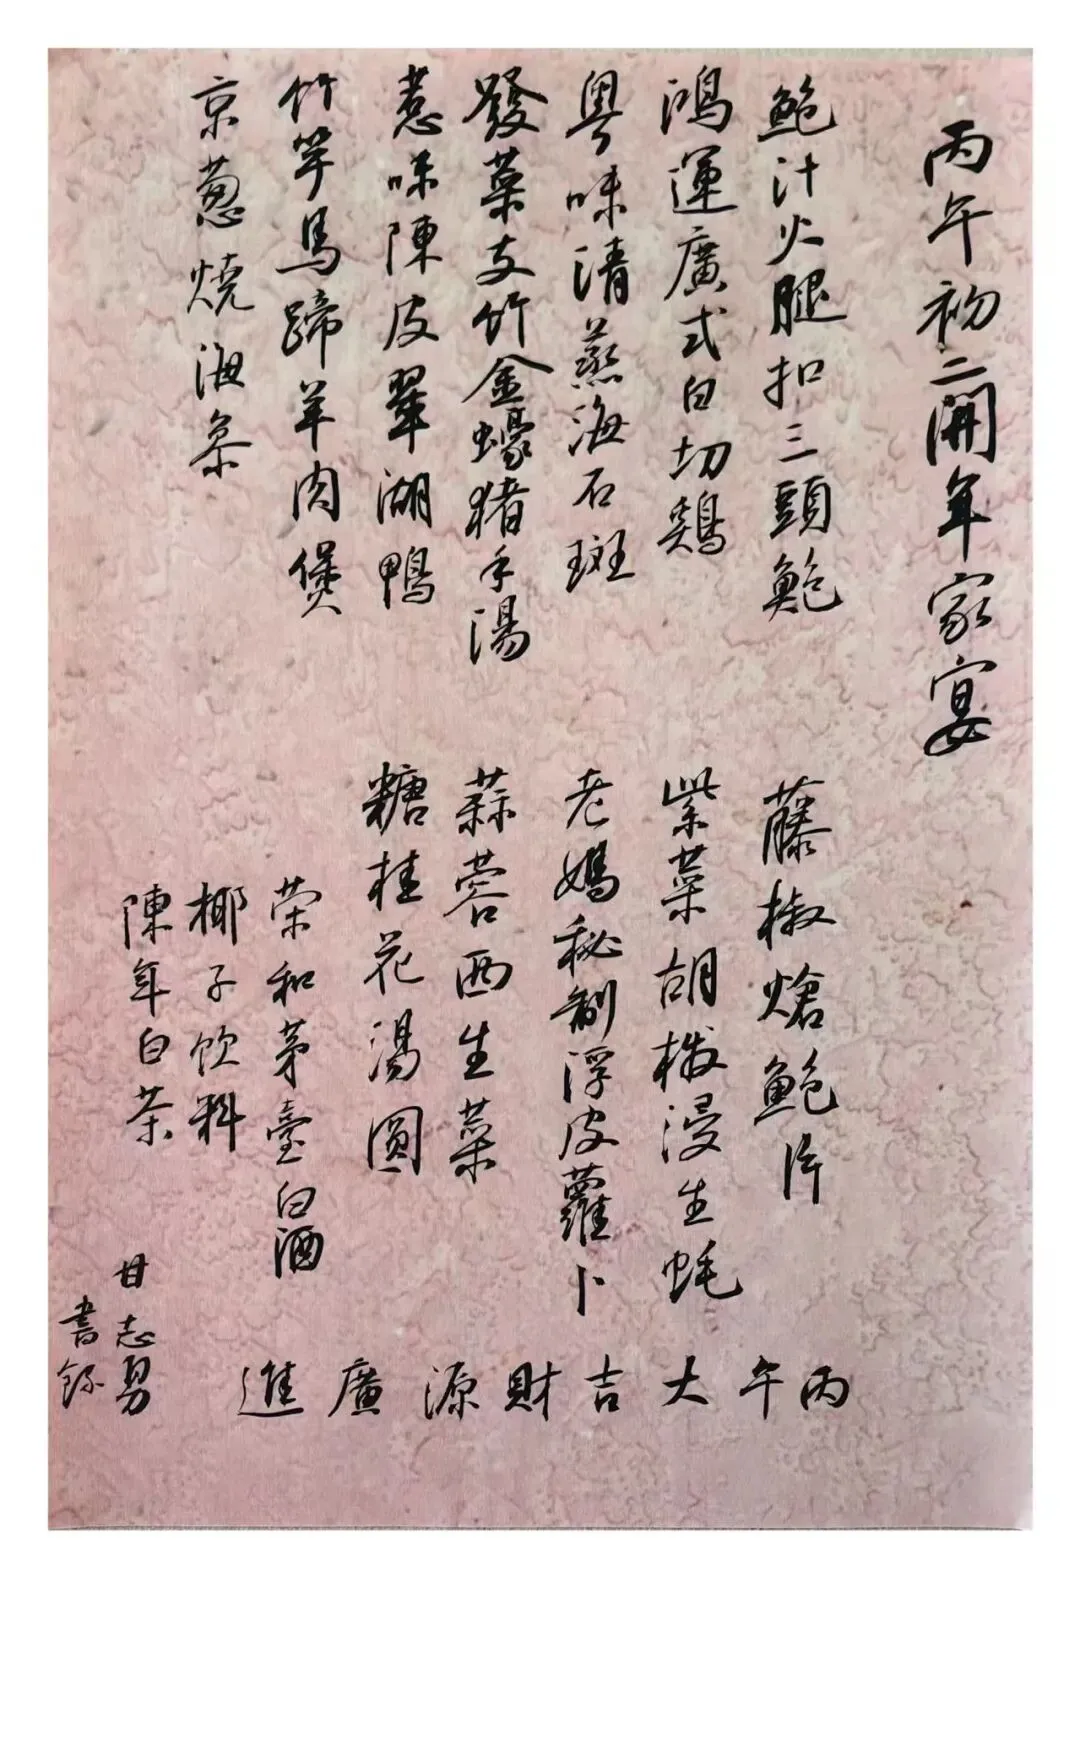 丙午初二開年家宴
鮑汁火腿扣三頭鮑
鴻運廣式白切鷄
粵味清蒸海石斑
發菜支竹金蠔猪手湯
惹味陳皮翠湖鴨
竹竿馬蹄羊肉煲
京葱燒海參
藤椒熗鮑片
紫菜胡椒浸生蚝
老媽秘制浮皮蘿卜
蒜蓉西生菜
糖桂花湯圓
荣和茅臺白酒
椰子饮料
陳年白茶
丙午大吉財源廣進
甘志勇
書錄